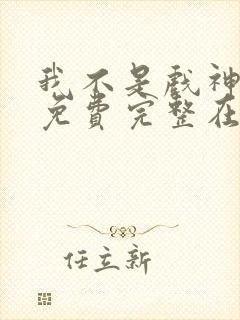 我不是戏神
免费完整在
任立新